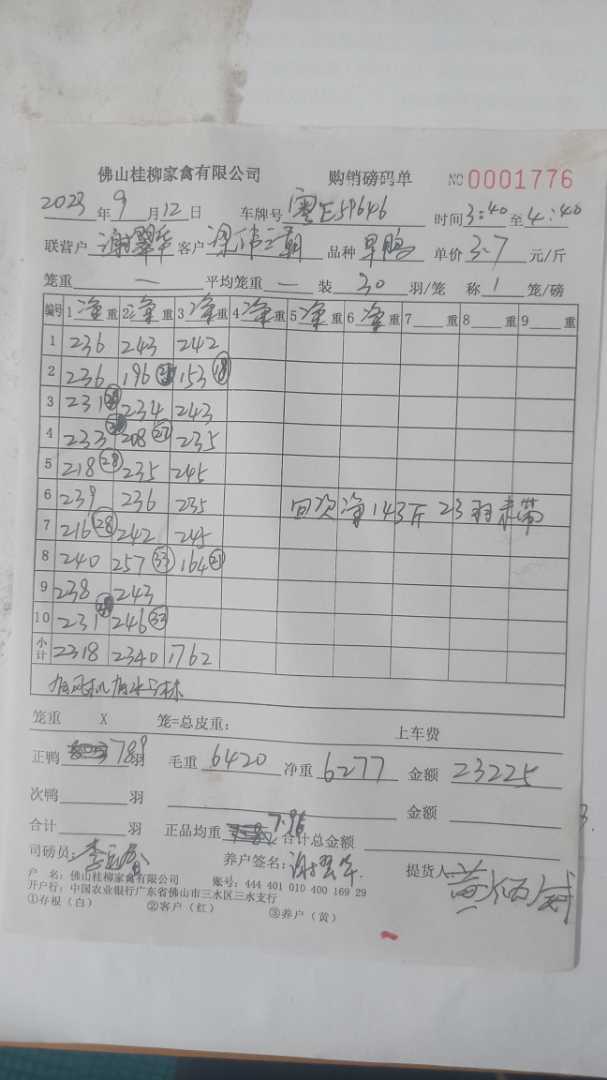 佛山桂柳家禽有限公司 购销磅码单 NO 0001776
2023年9月12日 车牌号粤E59646 时间3:40至4:40
联营户谢翠华 客户梁伟 品种旱鸭 单价3.7元/斤
笼重— 平均笼重— 装30羽/笼 称1笼/磅
编号 1净重 2净重 3净重 4净重 5净重 6净重 7重 8重 9重
1 236 243 242
2 236 196 153 18
3 231 234 243
4 233 208 27 235
5 218 28 235 245
6 239 236 235 回次净143斤23羽未带
7 216 28 242 245
8 240 257 33 164 21
9 238 243
10 231 246 33
小计 2318 2340 1762
笼重 X 笼=总皮重: 上车费
正鸭789羽 毛重6420 净重6277 金额23225
次鸭 羽 金额
合计 羽 正品均重7.96 合计总金额
司磅员:李 养户签名:谢翠华 提货人黄
户 名: 佛山桂柳家禽有限公司 账号: 444 401 010 400 169 29
开户行: 中国农业银行广东省佛山市三水区三水支行
①存根(白) ②客户(红) ③养户(黄)